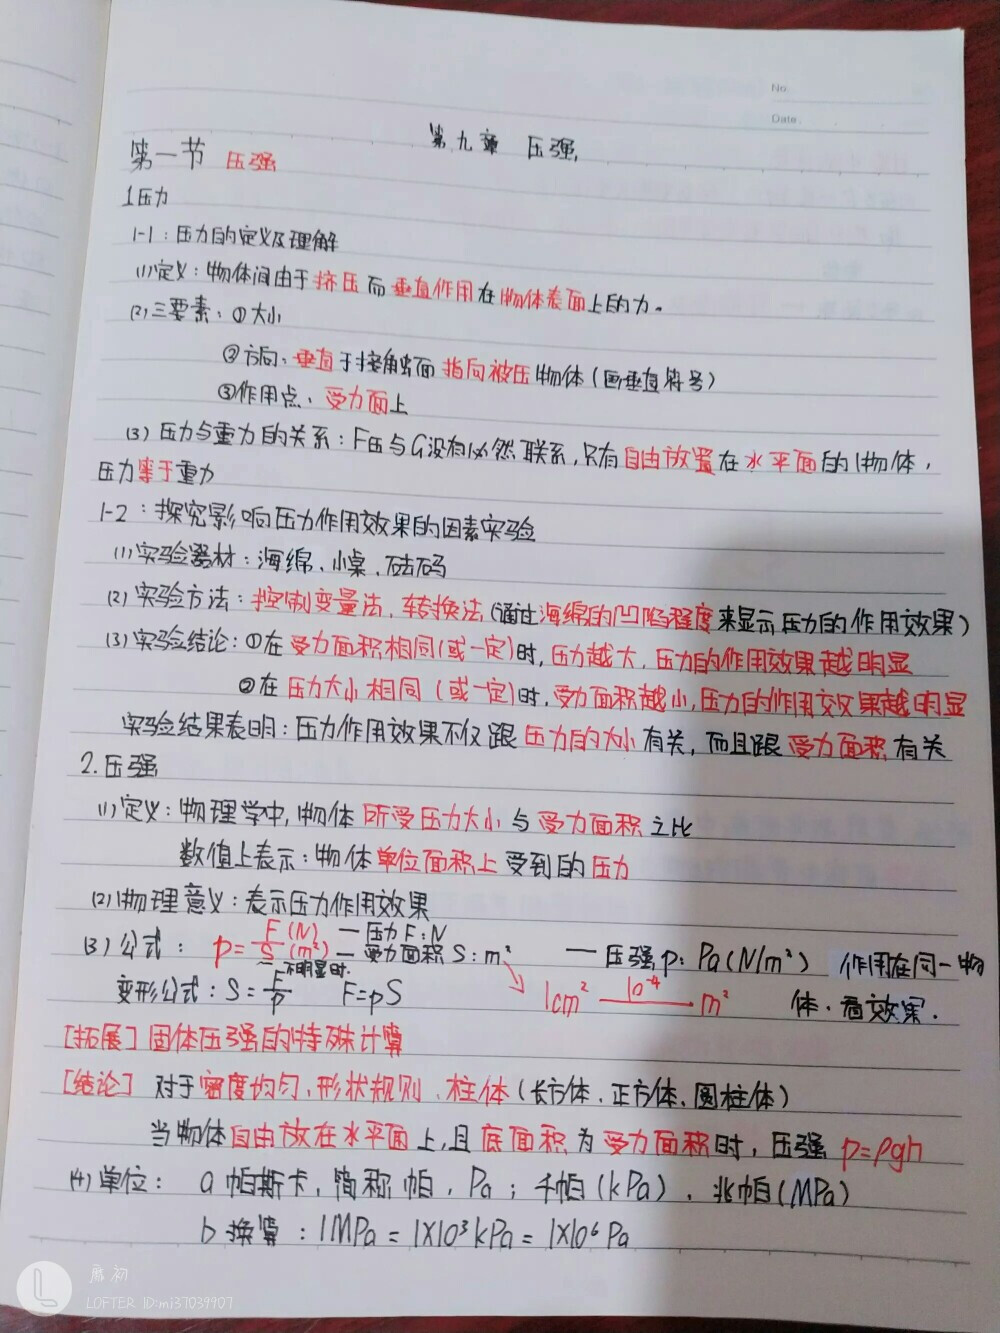 No.
Date.
第九章 压强
第一节 压强
1压力
1-1:压力的定义及理解
(1)定义:物体间由于挤压而垂直作用在物体表面上的力。
(2)三要素:①大小
②方向:垂直于接触面指向被压物体(画垂直符号)
③作用点:受力面上
(3)压力与重力的关系:F压与G没有必然联系,只有自由放置在水平面的物体,
压力等于重力
1-2:探究影响压力作用效果的因素实验
(1)实验器材:海绵、小桌、砝码
(2)实验方法:控制变量法、转换法(通过海绵的凹陷程度来显示压力的作用效果)
(3)实验结论:①在受力面积相同(或一定)时,压力越大,压力的作用效果越明显
②在压力大小相同(或一定)时,受力面积越小,压力的作用效果越明显
实验结果表明:压力作用效果不仅跟压力的大小有关,而且跟受力面积有关
2.压强
(1)定义:物理学中,物体所受压力大小与受力面积之比
数值上表示:物体单位面积上受到的压力
(2)物理意义:表示压力作用效果
(3)公式: p=F(N)/S(m²) —压力F:N —受力面积S:m² —压强p:Pa(N/m²) 作用在同一物
不明显时
变形公式:S=F/p F=pS 1cm² 10⁻⁴ m² 体,看效果.
[拓展]固体压强的特殊计算
[结论] 对于密度均匀、形状规则、柱体(长方体、正方体、圆柱体)
当物体自由放在水平面上,且底面积为受力面积时,压强p=ρgh
(4)单位: a 帕斯卡,简称帕,Pa;千帕(kPa)、兆帕(MPa)
b 换算:1MPa=1X10³kPa=1X10⁶Pa
LOFTER ID:mi37039907